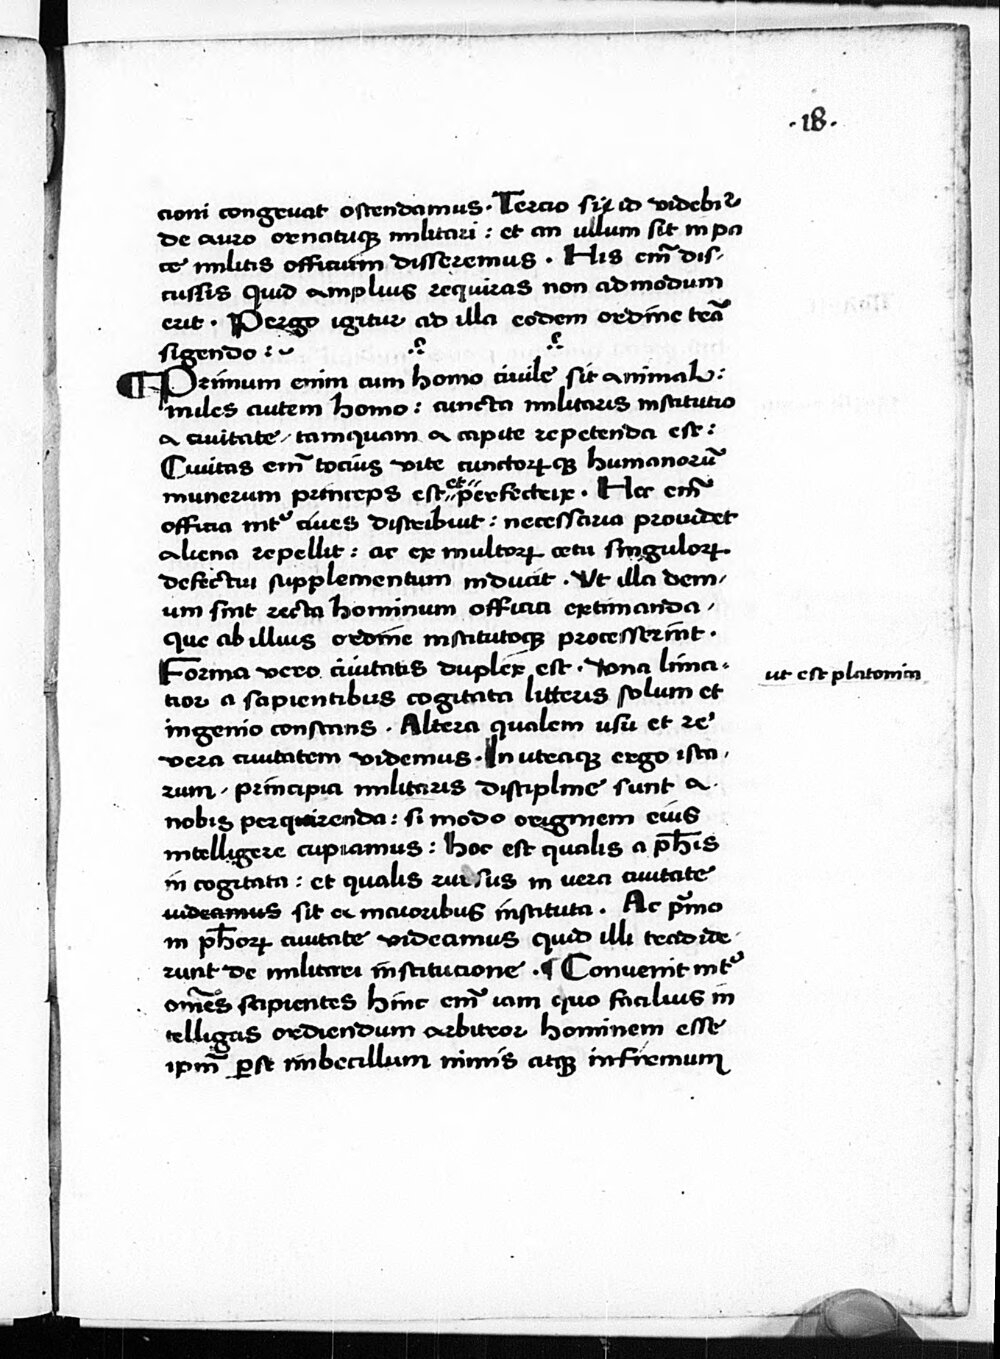 ·18·
cioni congruat ostendamus. Tercio siɋ id videbit̃
de auro ornatuqꝫ militari : et an ullum sit in pa
ce militis officium disseremus . His em̃ dis-
cussis quid amplius requiras non admodum
erit . Pergo igitur ad illa eodem ordine trã
sigendo :
Primum enim cum homo civile sit animal :
miles autem homo : cuncta militaris institutio
a civitate / tamquam a capite repetenda est :
Civitas em̃ tocius vite cunctorꝝqꝫ humanorũ
munerum princeps est et perfectrix . Hec em̃
officia int᷑ cives distribuit : necessaria providet
aliena repellit : ac ex multorꝝ cetu singulorꝝ
defectui supplementum inducit . Ut illa dem-
um sint recta hominum officia extimanda /
que ab illius ordine institutoqꝫ processerint .
Forma vero civitatis duplex est . Vna lima-
tior a sapientibus cogitata litteris solum et
ingenio constans . Altera qualem usu et re
vera civitatem videmus . In utraqꝫ ergo ista-
rum / principia militaris discipline sunt a
nobis perquirenda : si modo originem eius
intelligere cupiamus : hoc est qualis a ph̃is
in cogitata : et qualis rursus in vera civitate
videamus sit a maioribus instituta . Ac pͥmo
in ph̃orꝝ civitate videamus quid illi tradide-
runt de militari institucione . ¶ Convenit int᷑
om̃es sapientes hinc em̃ iam quo facilius in
telligas ordiendum arbitror hominem esse
ipm̃ ꝑ se imbecillum nimis atqꝫ infirmum
ut est platonica